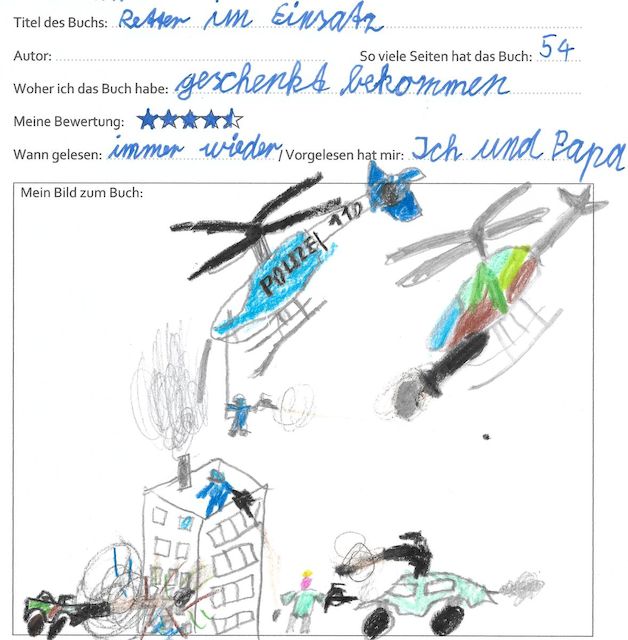 Titel des Buchs: Retter im Einsatz
Autor:
So viele Seiten hat das Buch: 54
Woher ich das Buch habe: geschenkt bekommen
Meine Bewertung:
Wann gelesen: immer wieder / Vorgelesen hat mir: Ich und Papa
Mein Bild zum Buch:
POLIZEI 110